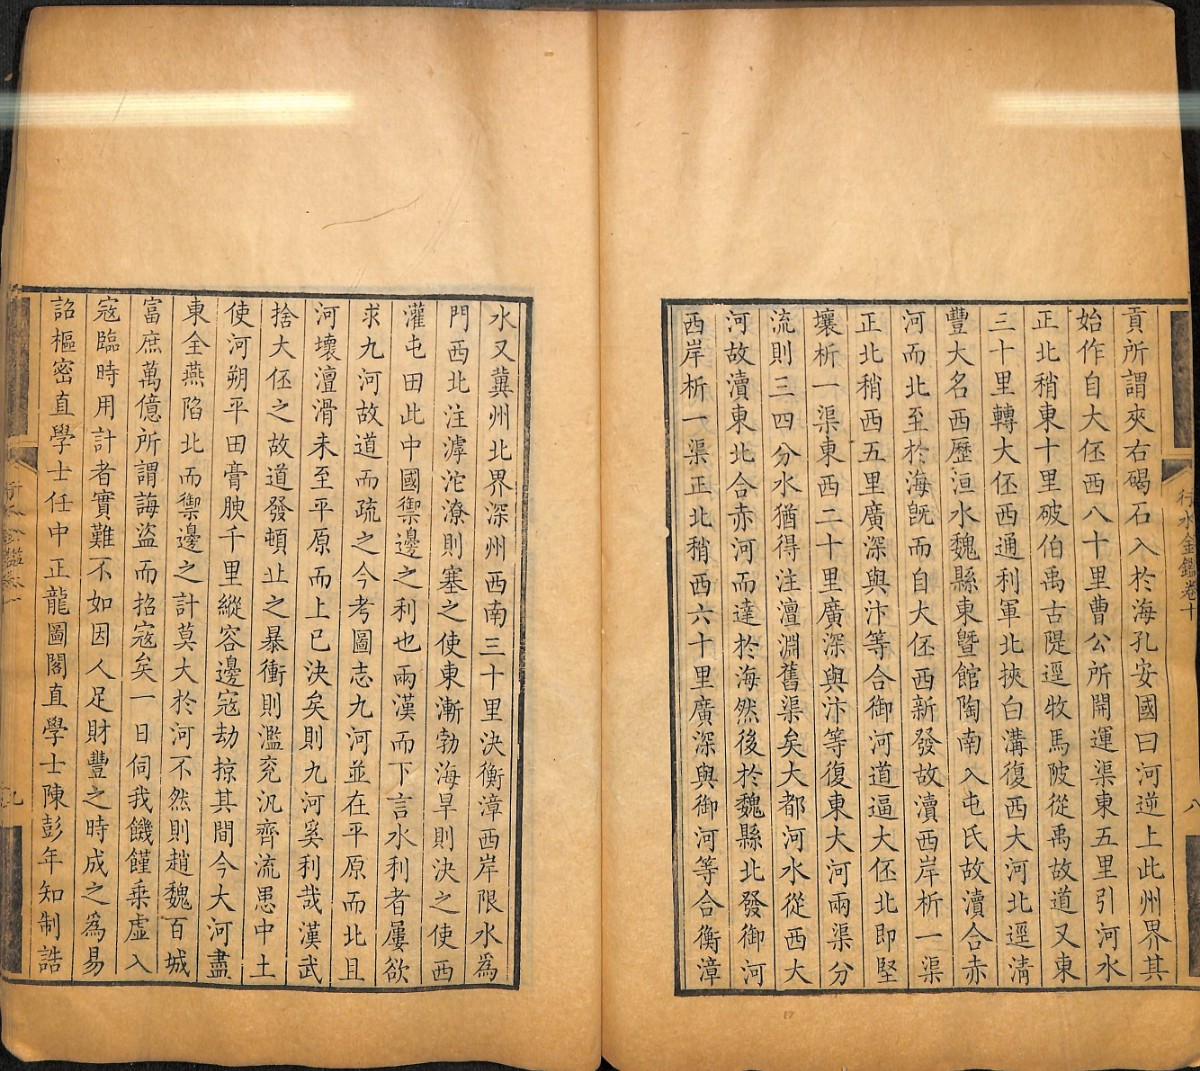 行水金鑑卷十
八
貢所謂夾右碣石入於海孔安國曰河逆上此州界其
始作自大伾西八十里曹公所開運渠東五里引河水
正北稍東十里破伯禹古隄逕牧馬陂從禹故道又東
三十里轉大伾西通利軍北挾白溝復西大河北逕清
豐大名西歷洹水魏縣東曁館陶南入屯氏故瀆合赤
河而北至於海旣而自大伾西新發故瀆西岸析一渠
正北稍西五里廣深與汴等合御河道逼大伾北即堅
壤析一渠東西二十里廣深與汴等復東大河兩渠分
流則三四分水猶得注澶淵舊渠矣大都河水從西大
河故瀆東北合赤河而達於海然後於魏縣北發御河
西岸析一渠正北稍西六十里廣深與御河等合衡漳
水又冀州北界深州西南三十里決衡漳西岸限水爲
門西北注滹沱潦則塞之使東漸勃海旱則決之使西
灌屯田此中國禦邊之利也兩漢而下言水利者屢欲
求九河故道而疏之今考圖志九河並在平原而北且
河壞澶滑未至平原而上已決矣則九河奚利哉漢武
捨大伾之故道發頓丘之暴衝則濫兖汎齊流患中土
使河朔平田膏腴千里縱容邊寇劫掠其間今大河盡
東全燕陷北而禦邊之計莫大於河不然則趙魏百城
富庶萬億所謂誨盜而招寇矣一日伺我饑饉乘虛入
寇臨時用計者實難不如因人足財豐之時成之爲易
詔樞密直學士任中正龍圖閣直學士陳彭年知制誥